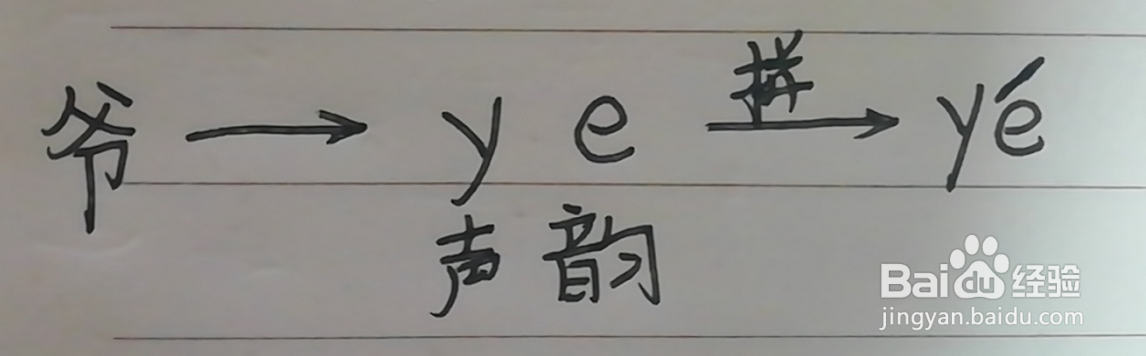 爷 → y e 拼→ yé
声 韵
Baidu经验
jingyan.baidu.com